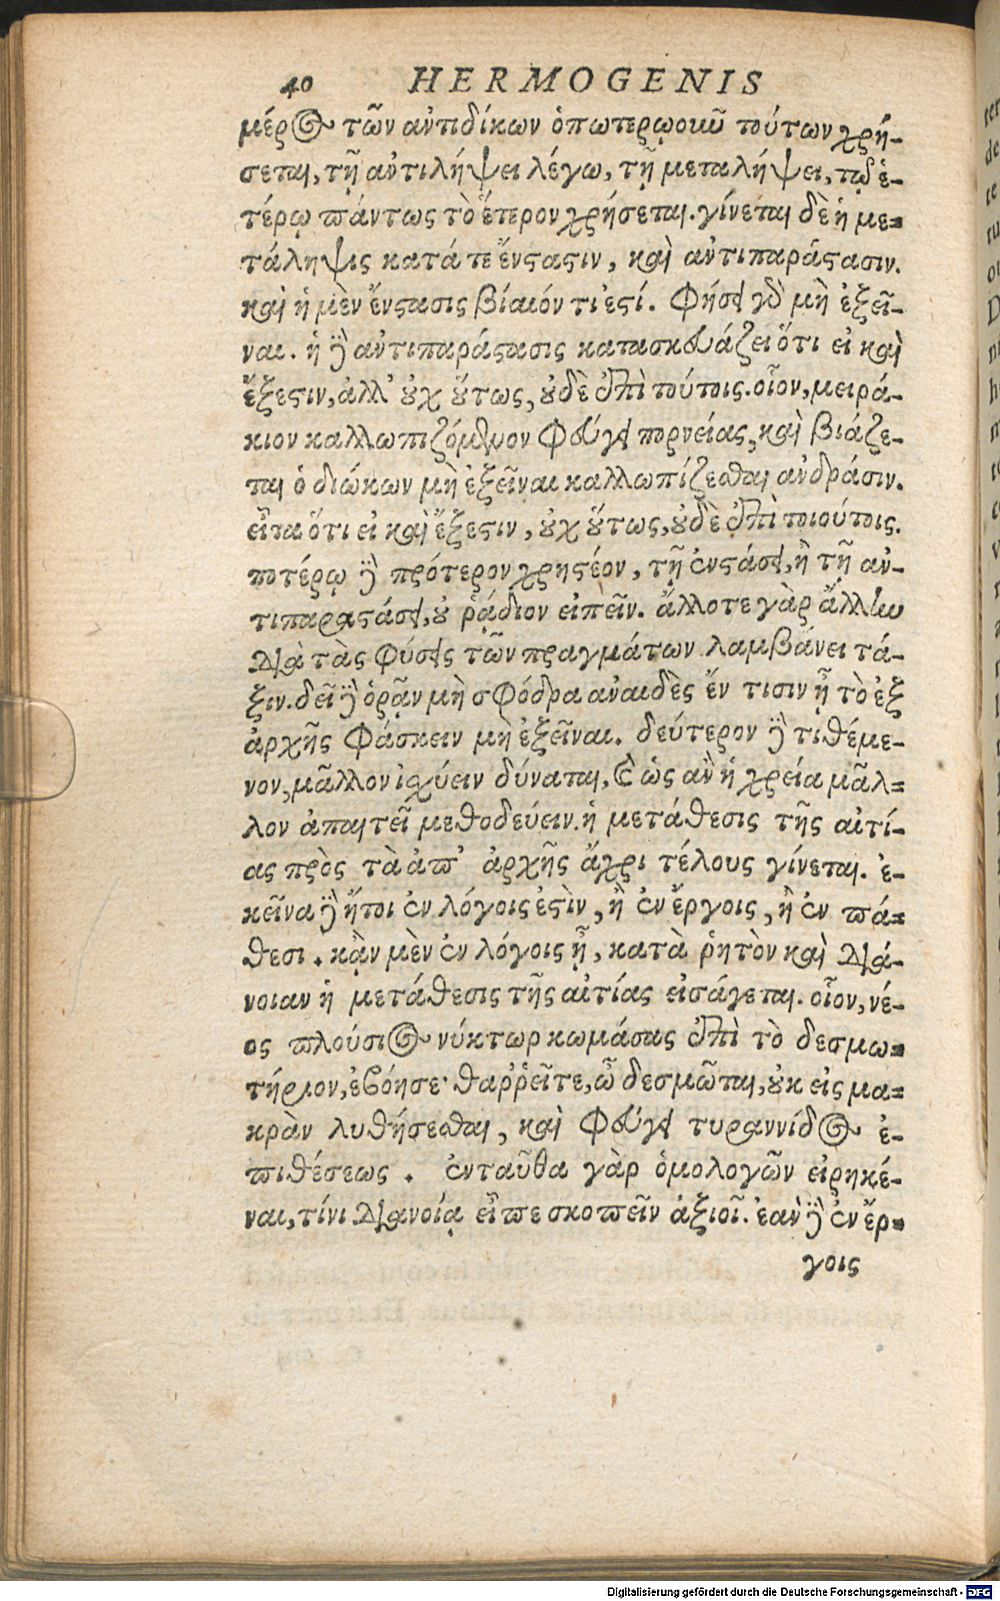 40 HERMOGENIS
μέρος τῶν ἀντιδίκων ὁποτέρῳοιυῦ τούτων χρή-
σεται, τῇ ἀντιλήψει λέγω, τῇ μεταλήψει, τῷ ἑ-
τέρῳ πάντως τὸ ἕτερον χρήσεται. γίνεται δὲ ἡ με-
τάληψις κατά τε ἔνστασιν, καὶ ἀντιπαράστασιν.
καὶ ἡ μὲν ἔνστασις βίαιόν τι ἐστί. φήσει γὸ μὴ ἐξεῖ-
ναι. ἡ δὲ ἀντιπαράστασις κατασκευάζει ὅτι εἰ καὶ
ἔξεστιν, ἀλλ' οὐχ οὕτως, οὐδὲ ἐπὶ τούτοις. οἷον, μειρά-
κιον καλλωπιζόμενον φεύγει πορνείας, καὶ βιάζε-
ται ὁ διώκων μὴ ἐξεῖναι καλλωπίζεσθαι ἀνδράσιν.
εἶτα ὅτι εἰ καὶ ἔξεστιν, οὐχ οὕτως, οὐδὲ ἐπὶ τοιούτοις.
ποτέρῳ δὲ πρότερον χρηστέον, τῇ ἐνστάσει, ἢ τῇ ἀν-
τιπαραστάσει, οὐ ῥᾴδιον εἰπεῖν. ἄλλοτε γὰρ ἄλλην
διὰ τὰς φύσεις τῶν πραγμάτων λαμβάνει τά-
ξιν. δεῖ δὲ ὁρᾷν μὴ σφόδρα ἀναιδὲς ἔν τισιν ᾖ τὸ ἐξ
ἀρχῆς φάσκειν μὴ ἐξεῖναι. δεύτερον δὲ τιθέμε-
νον, μᾶλλον ἰσχύειν δύναται, καὶ ὡς ἂν ἡ χρεία μᾶλ-
λον ἀπαιτεῖ μεθοδεύειν. ἡ μετάθεσις τῆς αἰτί-
ας πρὸς τὰ ἀπ' ἀρχῆς ἄχρι τέλους γίνεται. ἐ-
κεῖνα δὲ ἤτοι ἐν λόγοις ἐστὶν, ἢ ἐν ἔργοις, ἢ ἐν πά-
θεσι. κἂν μὲν ἐν λόγοις ᾖ, κατὰ ῥητὸν καὶ διά-
νοιαν ἡ μετάθεσις τῆς αἰτίας εἰσάγεται. οἷον, νέ-
ος πλούσιος νύκτωρ κωμάσας ἐπὶ τὸ δεσμω-
τήριον, ἐβόησε· θαῤῥεῖτε, ὦ δεσμῶται, οὐκ εἰς μα-
κρὰν λυθήσεσθαι, καὶ φεύγει τυραννίδος ἐ-
πιθέσεως. ἐνταῦθα γὰρ ὁμολογῶν εἰρηκέ-
ναι, τίνι διανοίᾳ εἶπε σκοπεῖν ἀξιοῖ. ἐὰν δὲ ἐν ἔρ-
γοις
Digitalisierung gefördert durch die Deutsche Forschungsgemeinschaft - DFG